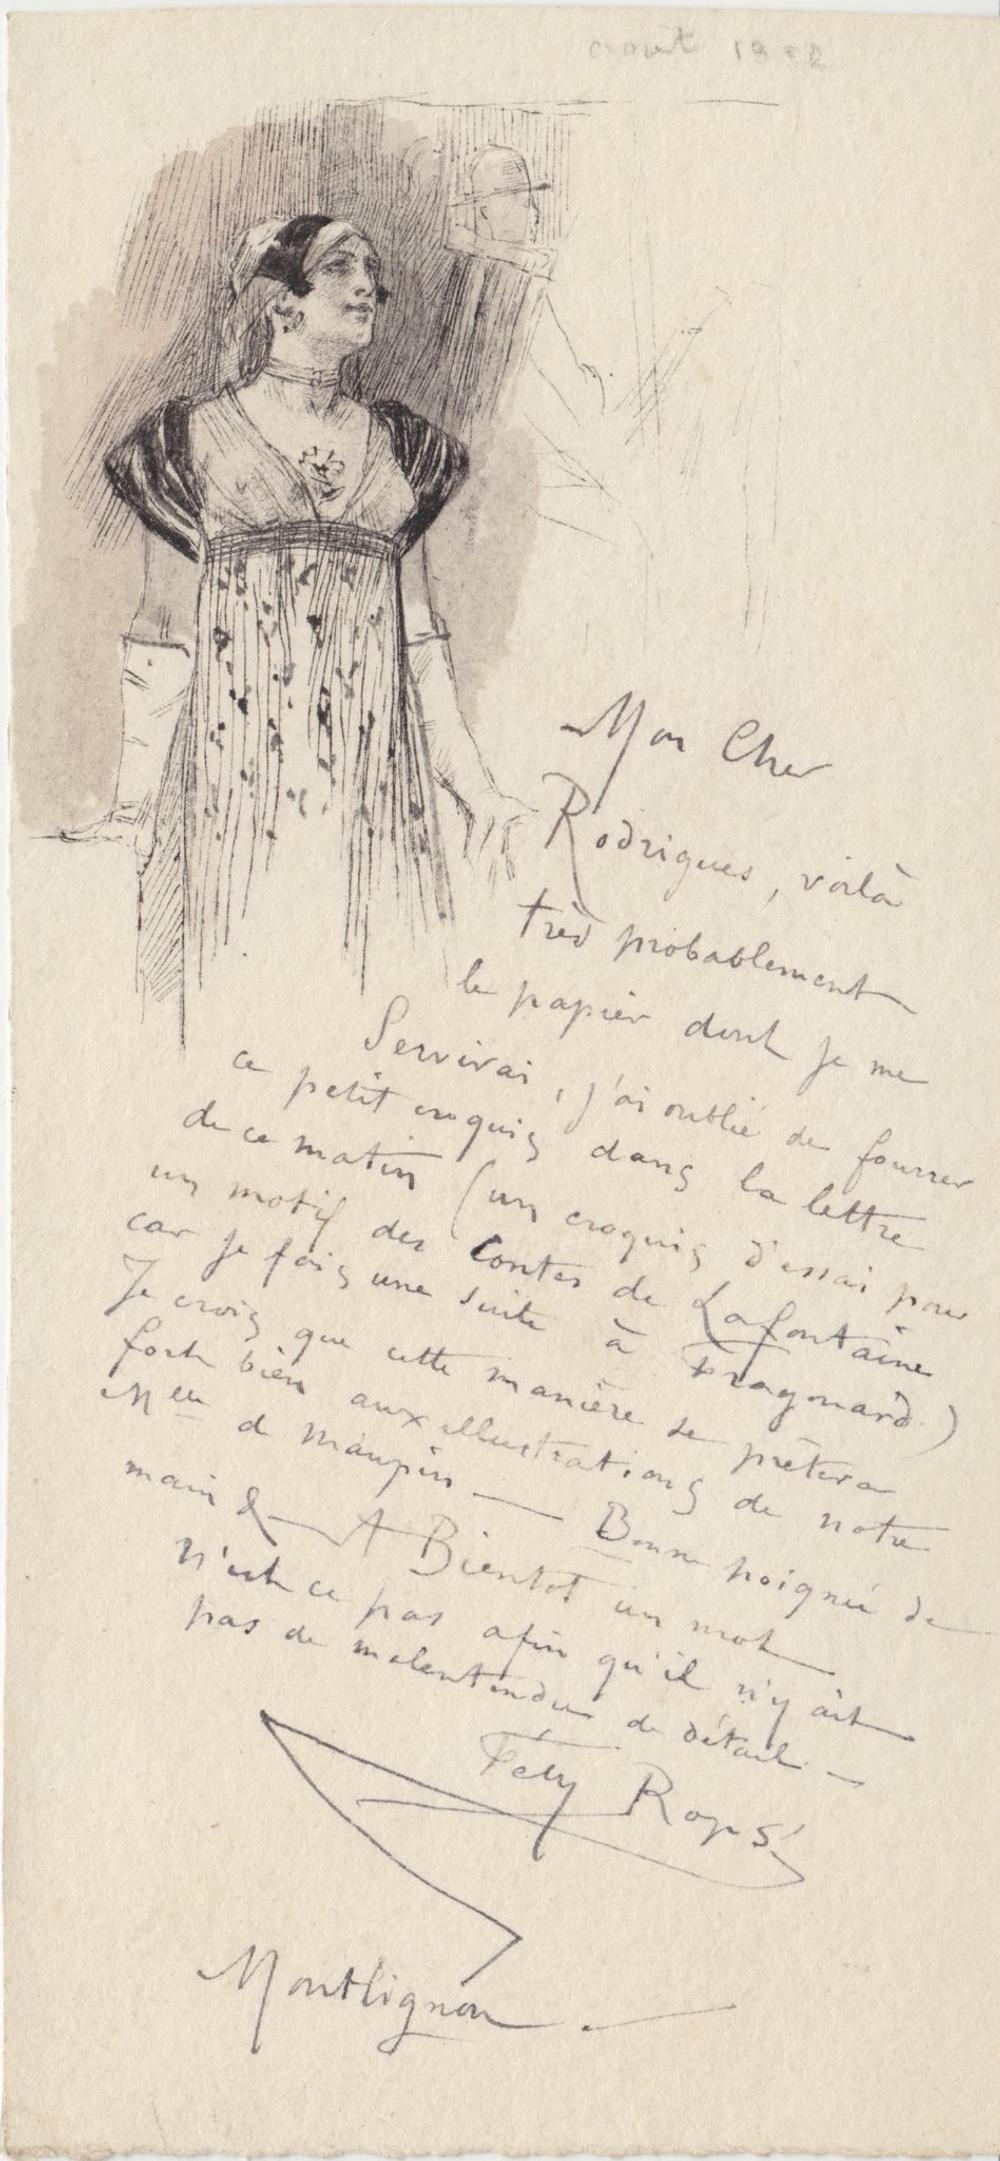 aout
Mon Cher
Rodrigues, voilà
très probablement
le papier dont je me
Servirai, j'ai oublié de fourrer
ce petit croquis dans la lettre
de ce matin (un croquis d'essai pour
un motif des Contes de Lafontaine
car je fais une suite à Fragonard)
Je crois que cette manière se prêtera
fort bien aux illustrations de notre
Melle d Maupin — Bonne poignée de
main & — A Bientot un mot
n'est ce pas afin qu'il n'y ait
pas de malentendu de détail —
Fély Rops
Montlignon. —